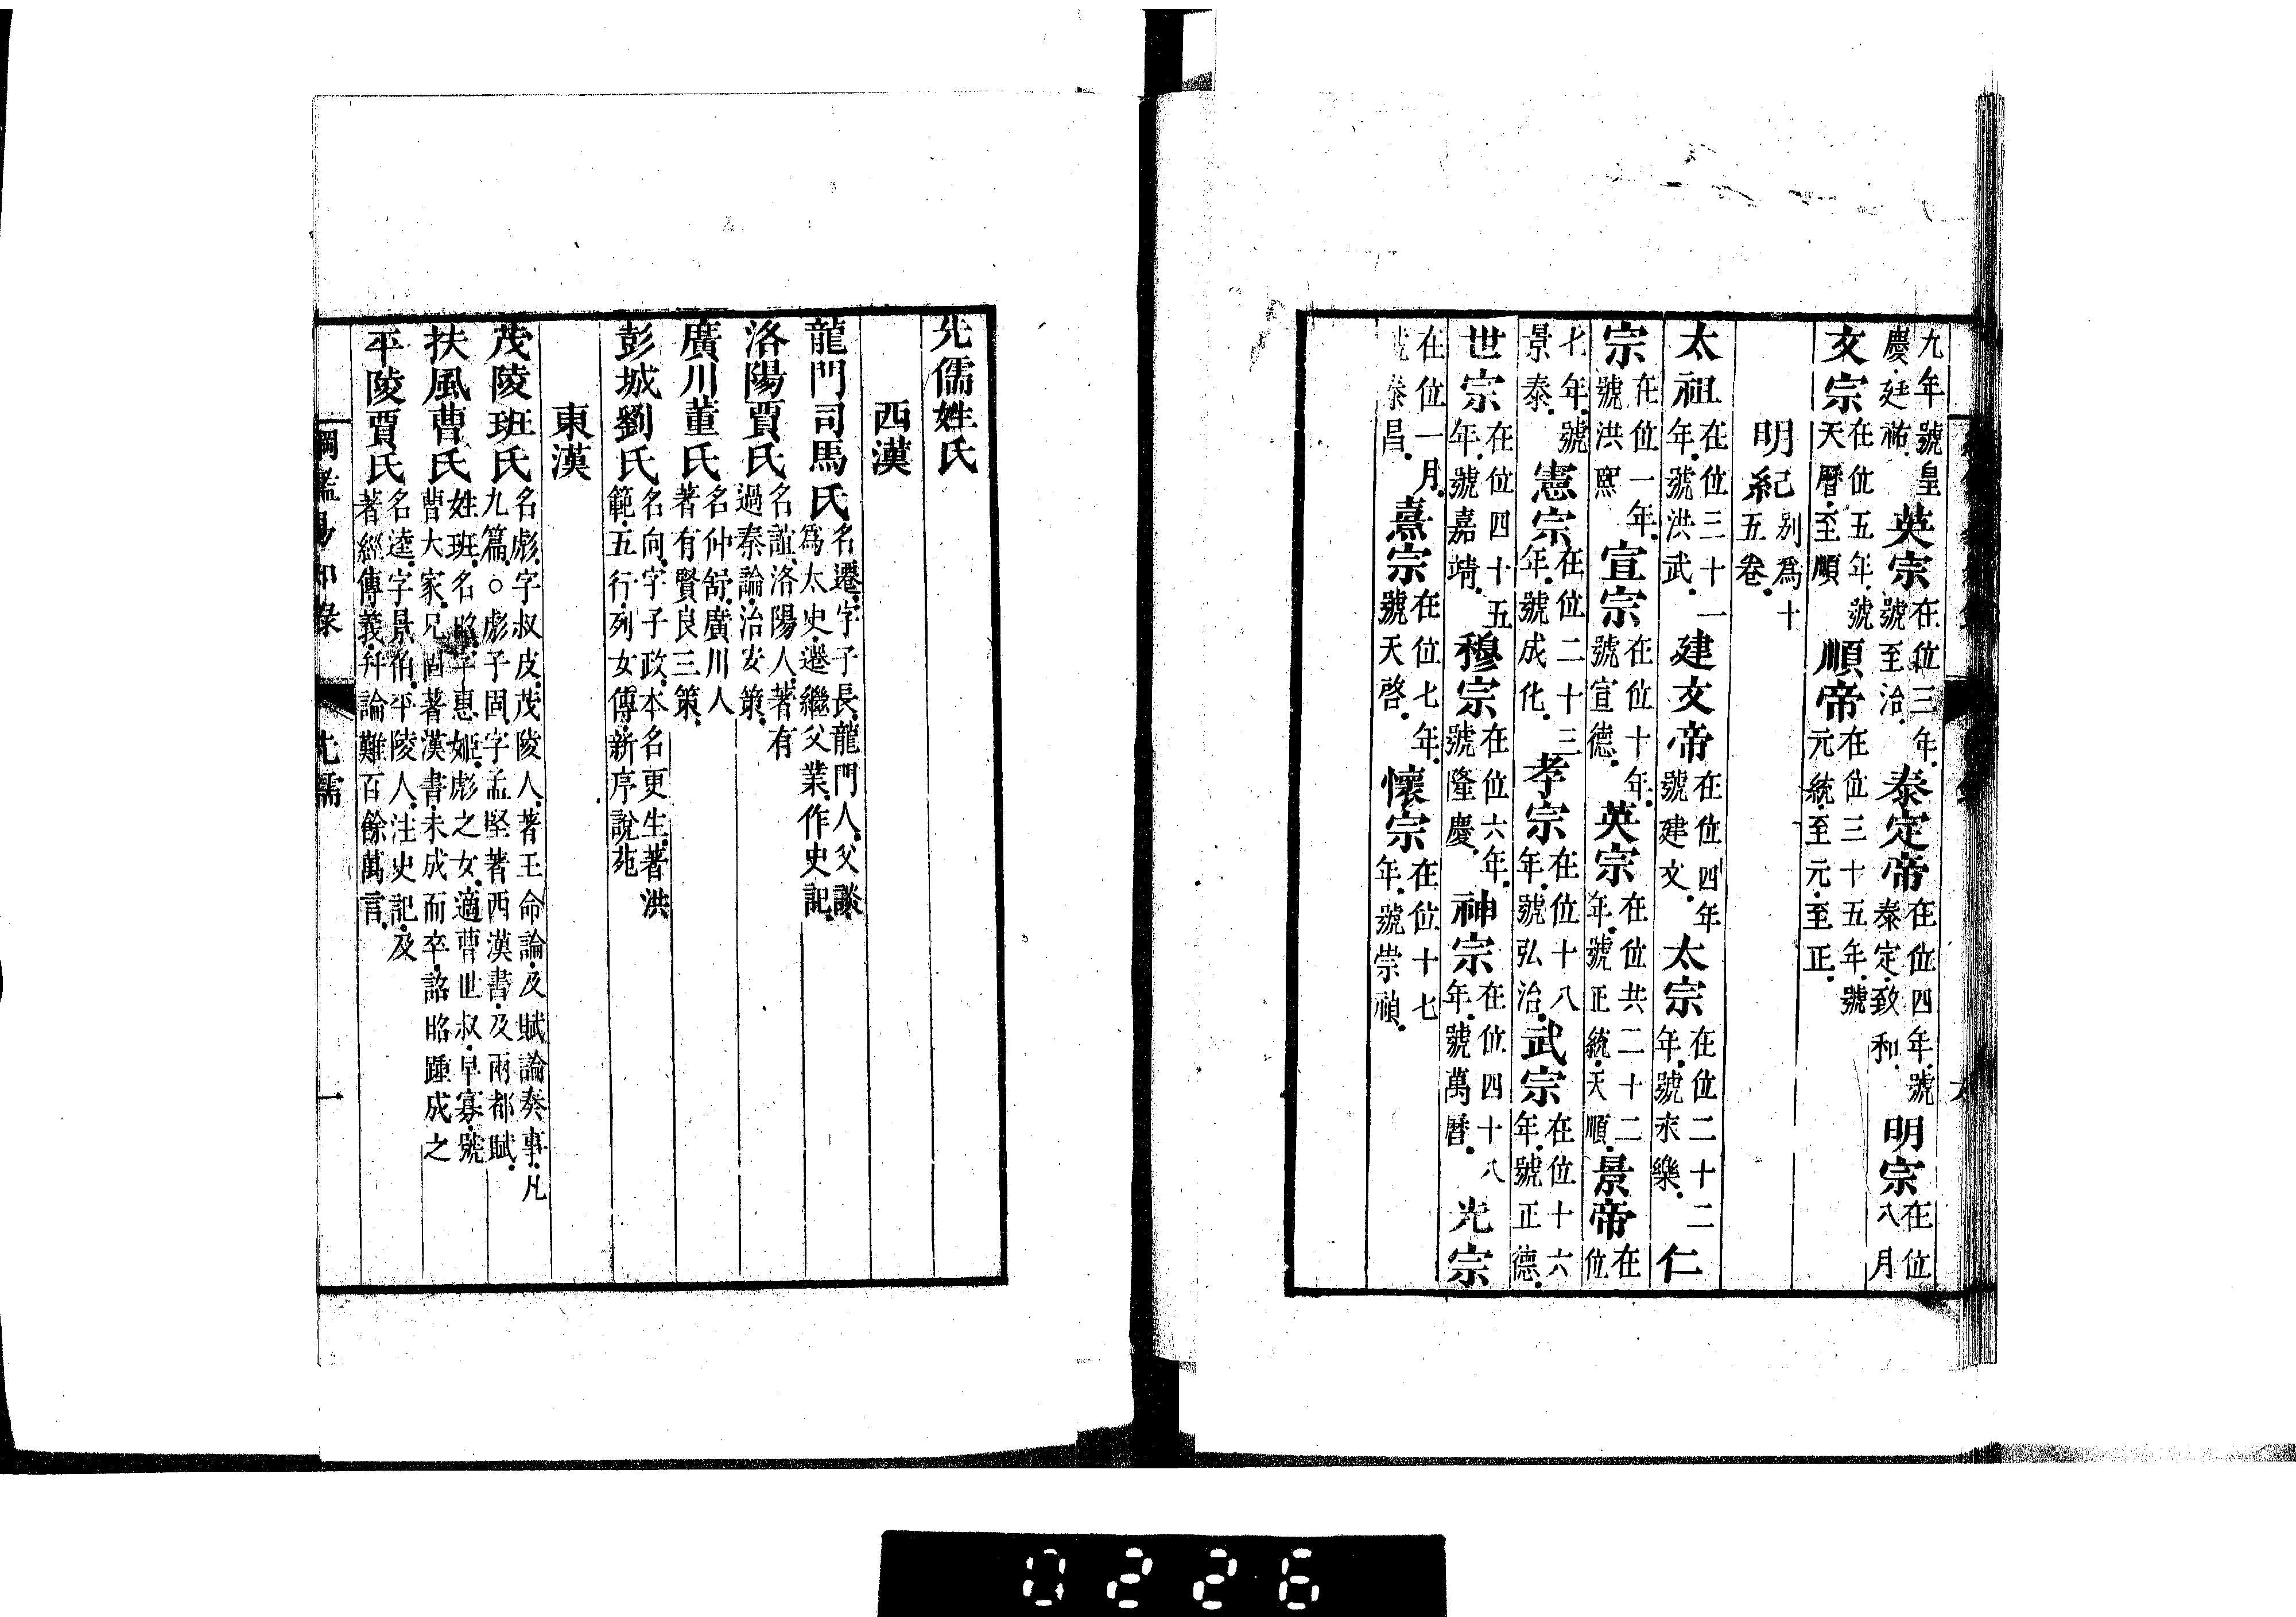 九年號皇慶延祐英宗在位三年號至治泰定帝在位四年號泰定致和明宗在位八月
文宗在位五年號天曆至順順帝在位三十五年號元統至元至正
明紀別爲十五卷
太祖在位三十一年號洪武建文帝在位四年號建文太宗在位二十二年號永樂仁
宗在位一年號洪熙宣宗在位十年號宣德英宗在位共二十二年號正統天順景帝在位
七年號景泰憲宗在位二十三年號成化孝宗在位十八年號弘治武宗在位十六年號正德
世宗在位四十五年號嘉靖穆宗在位六年號隆慶神宗在位四十八年號萬曆光宗
在位一月號泰昌熹宗在位七年號天啓懷宗在位十七年號崇禎
先儒姓氏
西漢
龍門司馬氏名遷字子長龍門人父談爲太史遷繼父業作史記
洛陽賈氏名誼洛陽人著有過秦論治安策
廣川董氏名仲舒廣川人著有賢良三策
彭城劉氏名向字子政本名更生著洪範五行列女傳新序說苑
東漢
茂陵班氏名彪字叔皮茂陵人著王命論及賦論奏事凡九篇○彪子固字孟堅著西漢書及兩都賦
扶風曹氏姓班名昭字惠姬彪之女適曹世叔早寡號曹大家兄固著漢書未成而卒詔昭踵成之
平陵賈氏名逵字景伯平陵人注史記及著經傳義并論難百餘萬言
綱鑑易知錄 先儒 一
0226